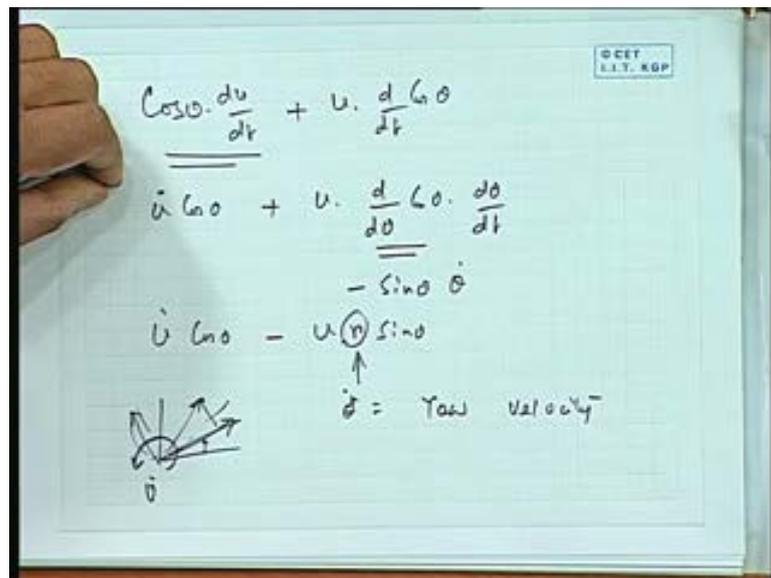 © CET
I.I.T. KGP
Cosθ. du/dt + u. d/dt Cos θ
u̇ Cos θ + u. d/dθ Cos θ. dθ/dt
- Sinθ θ̇
u̇ Cos θ - u r Sinθ
θ̇ = Yaw velocity